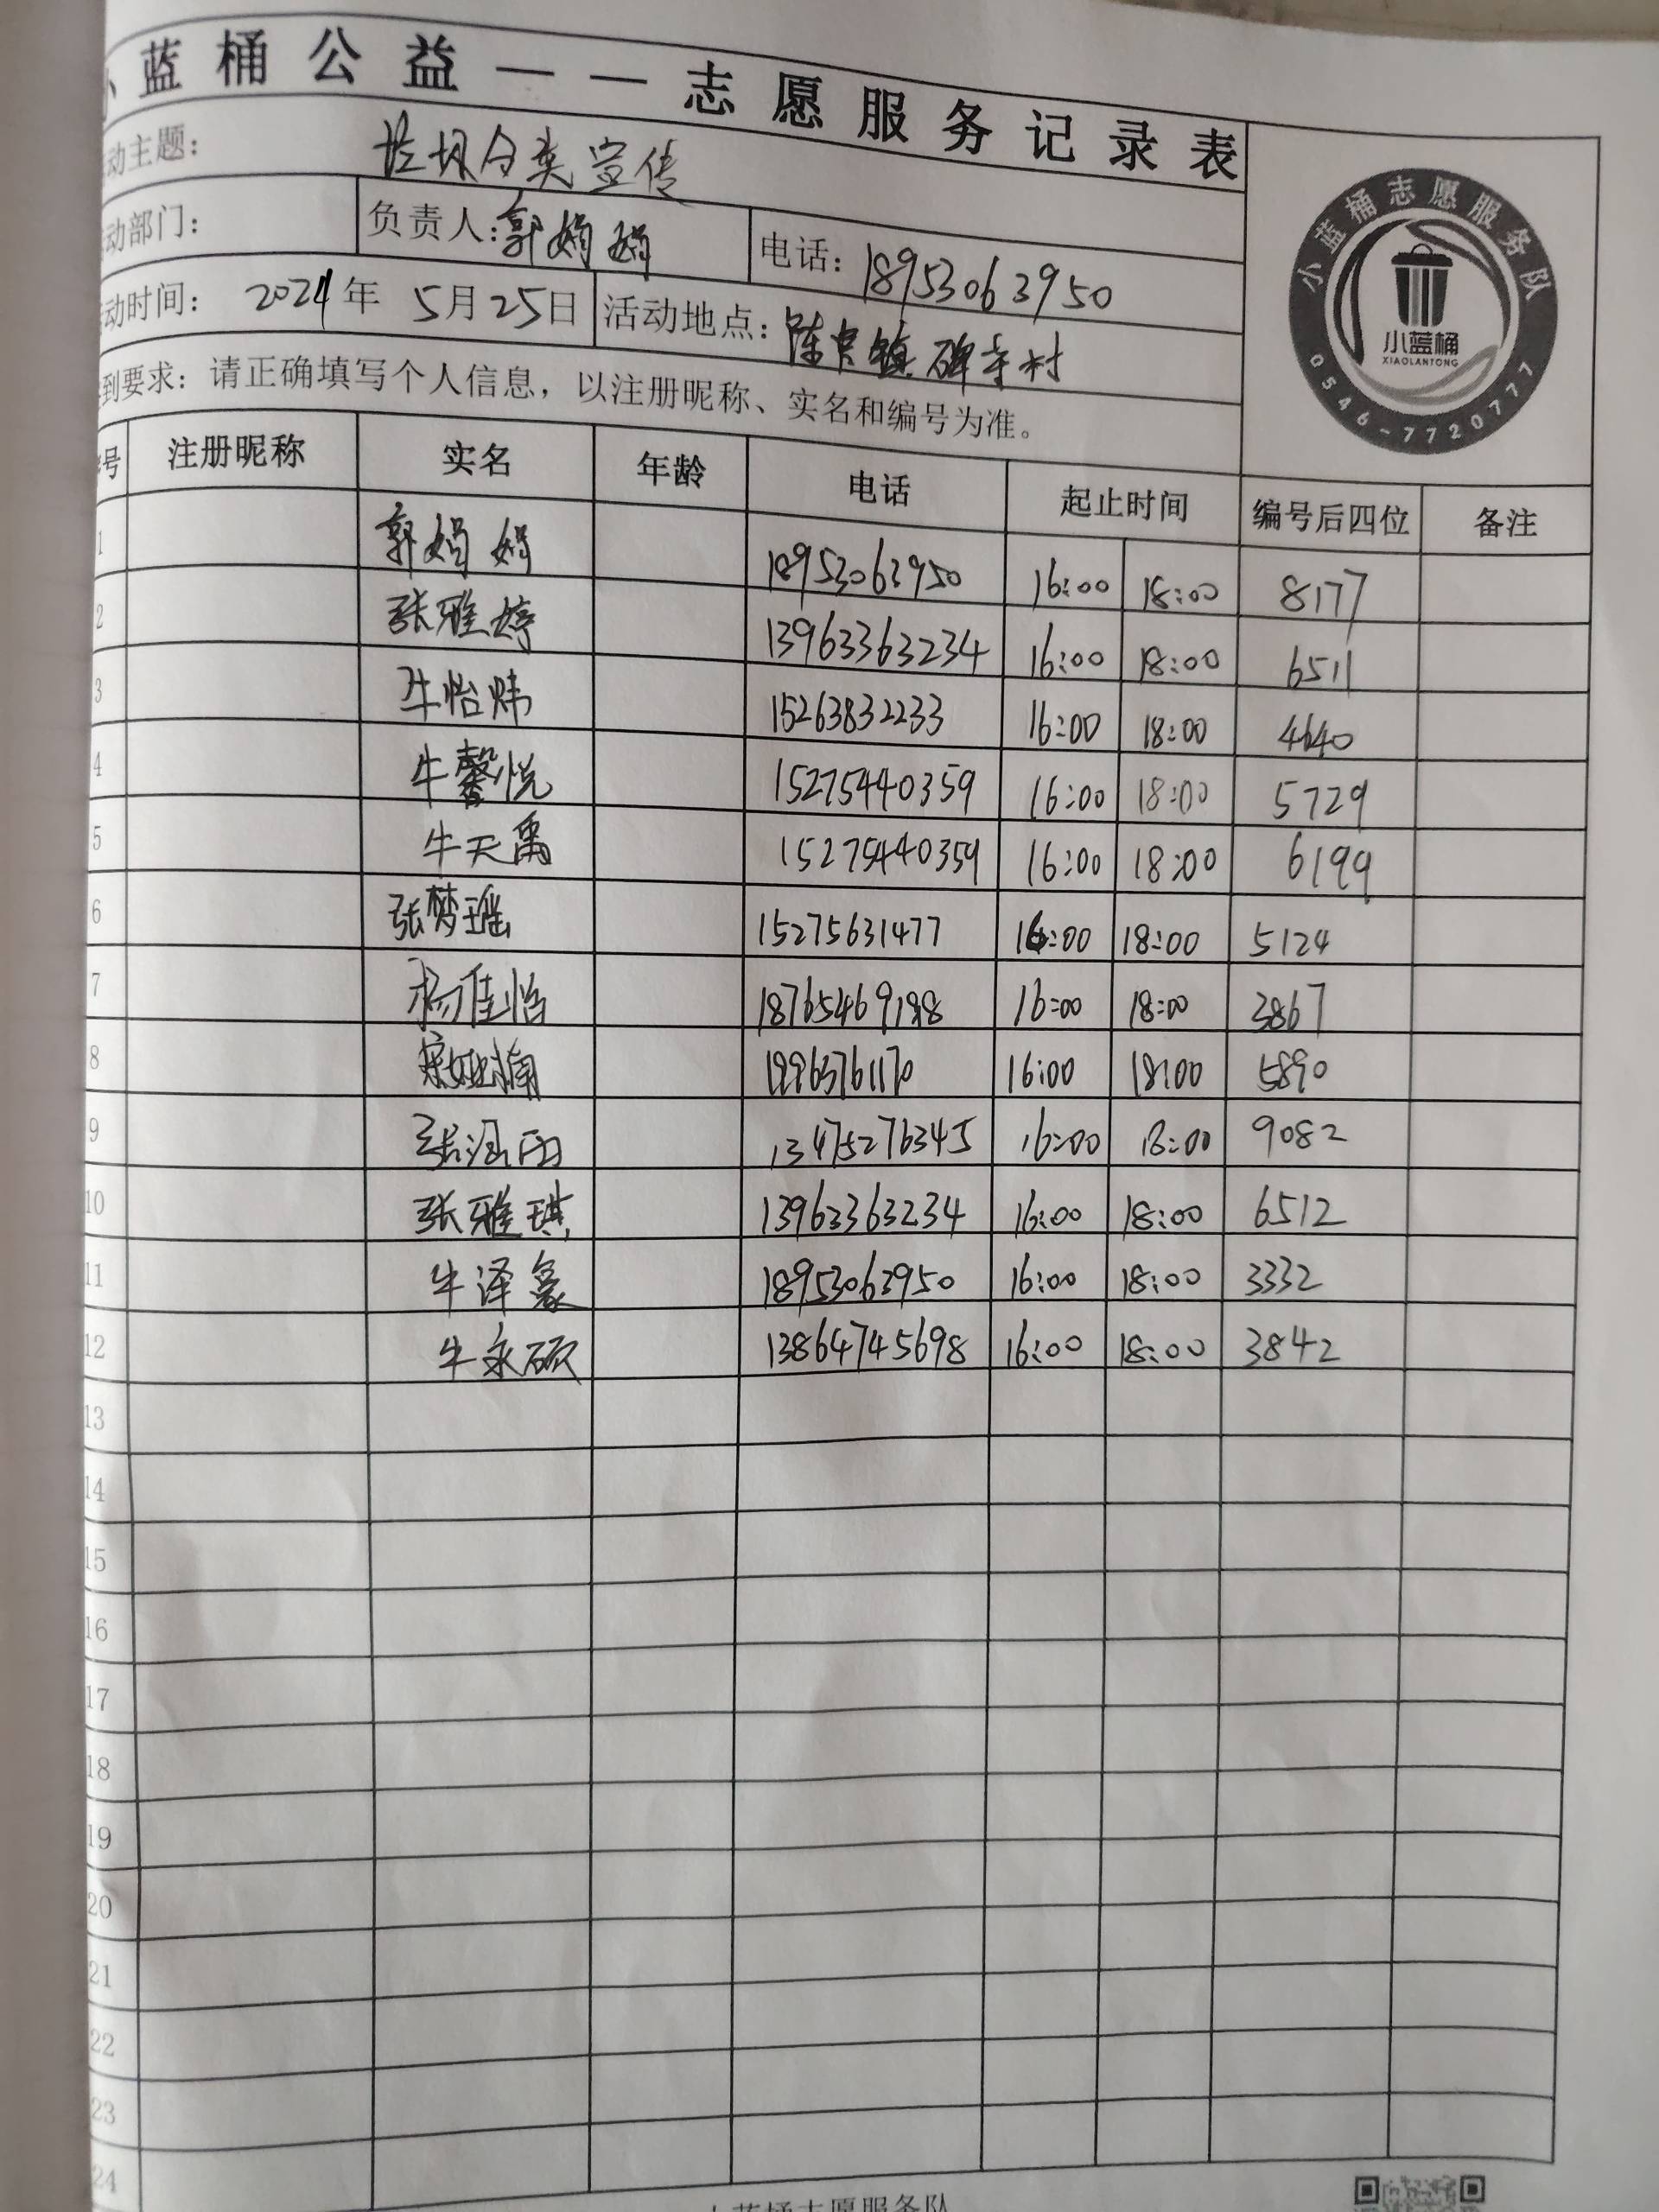 小蓝桶公益——志愿服务记录表
动主题： 垃圾分类宣传
动部门： 负责人：郭娟娟 电话：18953063950
动时间： 2024年 5月25日 活动地点：陈官镇碑寺村
到要求：请正确填写个人信息，以注册昵称、实名和编号为准。
小蓝桶志愿服务队
小蓝桶
XIAOLANTONG
0546-7720777
号 注册昵称 实名 年龄 电话 起止时间 编号后四位 备注
1 郭娟娟 18953063950 16:00 18:00 8177
2 张雅婷 13963363234 16:00 18:00 6511
3 牛怡炜 15263832233 16:00 18:00 4640
4 牛馨悦 15275440359 16:00 18:00 5729
5 牛天禹 15275440359 16:00 18:00 6199
6 张梦瑶 15275631477 16:00 18:00 5124
7 杨佳怡 18765469198 16:00 18:00 3867
8 16:00 18:00 5890
9 张涵雨 13475276345 16:00 18:00 9082
10 张雅琪 13963363234 16:00 18:00 6512
11 牛泽豪 18953063950 16:00 18:00 3332
12 牛永硕 13864745698 16:00 18:00 3842
13
14
15
16
17
18
19
20
21
22
23
24
小蓝桶志愿服务队